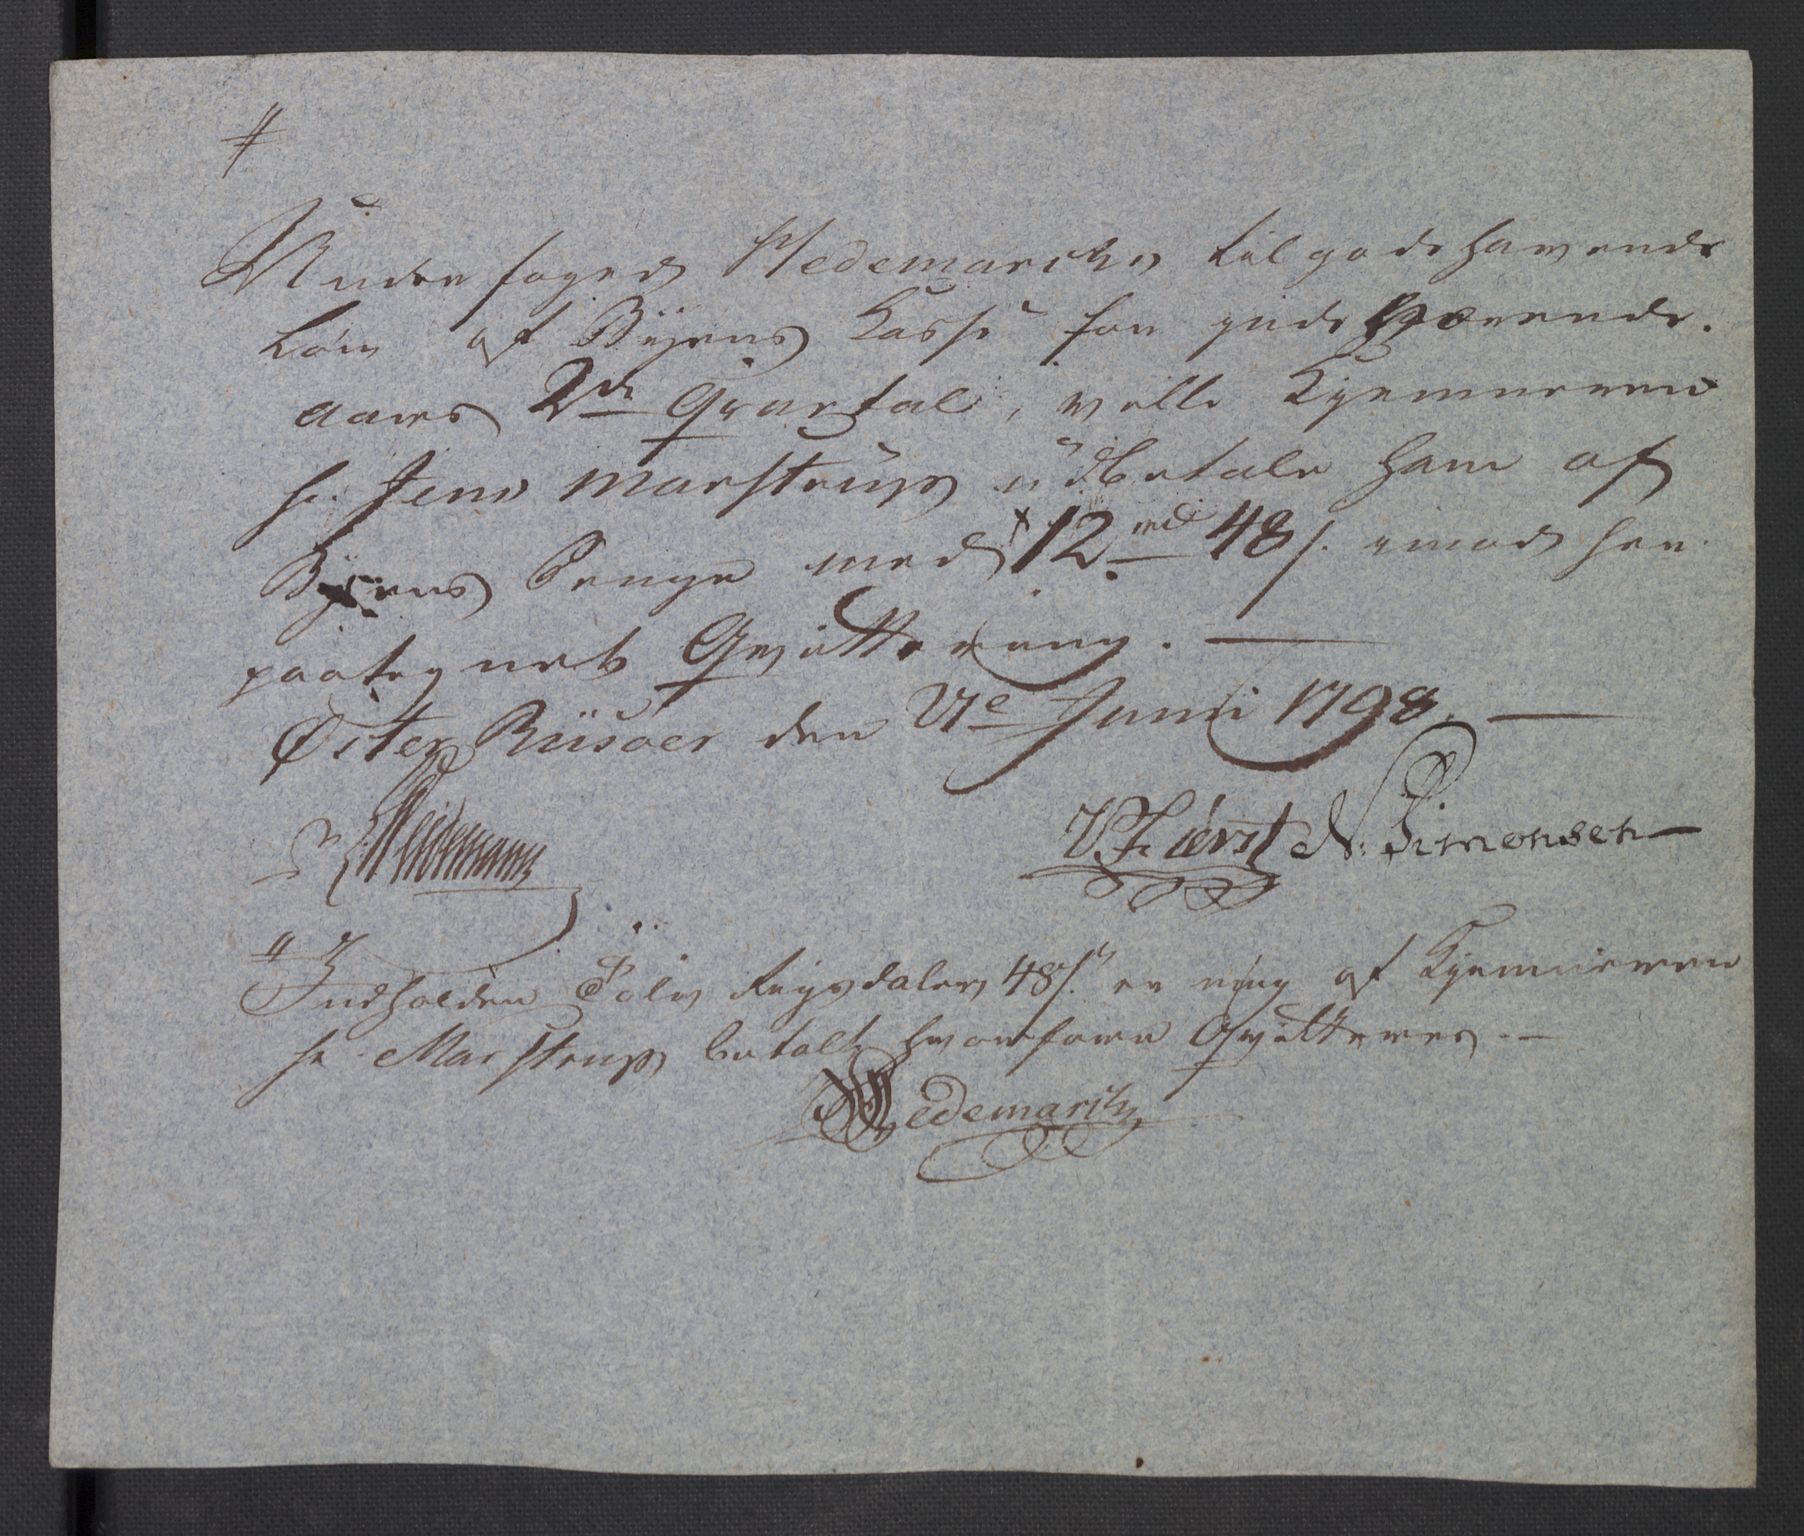 Underfoged Hedemarchs tilgodehavende
Løn af Byens Casse for inde værende
aars 2de Qvartal, vilde Kjemneren
hr. Jens Marstrup udbetale ham af
Byens Penge med 12 rd 48 s. imod her
paategnet Qvittering.
Øster Riisøer den 27e Junii 1798.
Weidemann N. Simonsen
Indholden Tolv Rigsdaler 48 s. er mig af Kjemneren
hr. Marstrup betalt hvorfore Qvitteres.
Hedemarch